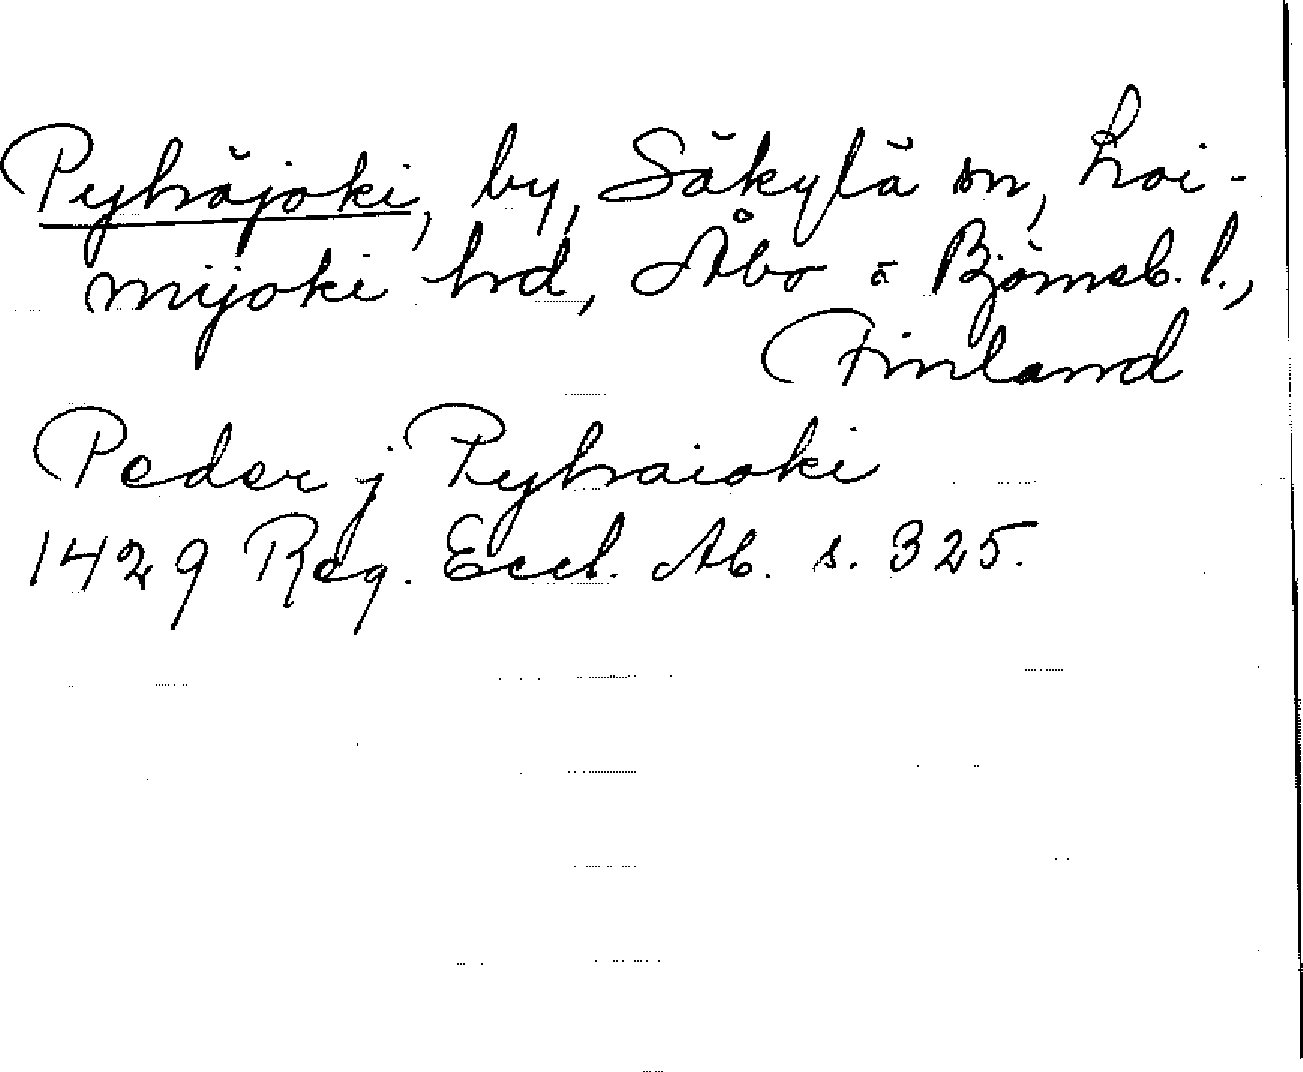 Pyhäjoki, by, Säkylä sn, Loi-
mijoki hd, Åbo o Björneb. l.,
Finland
Peder j Pyhaioki
1429 Reg. Eccl. Ab. s. 325.